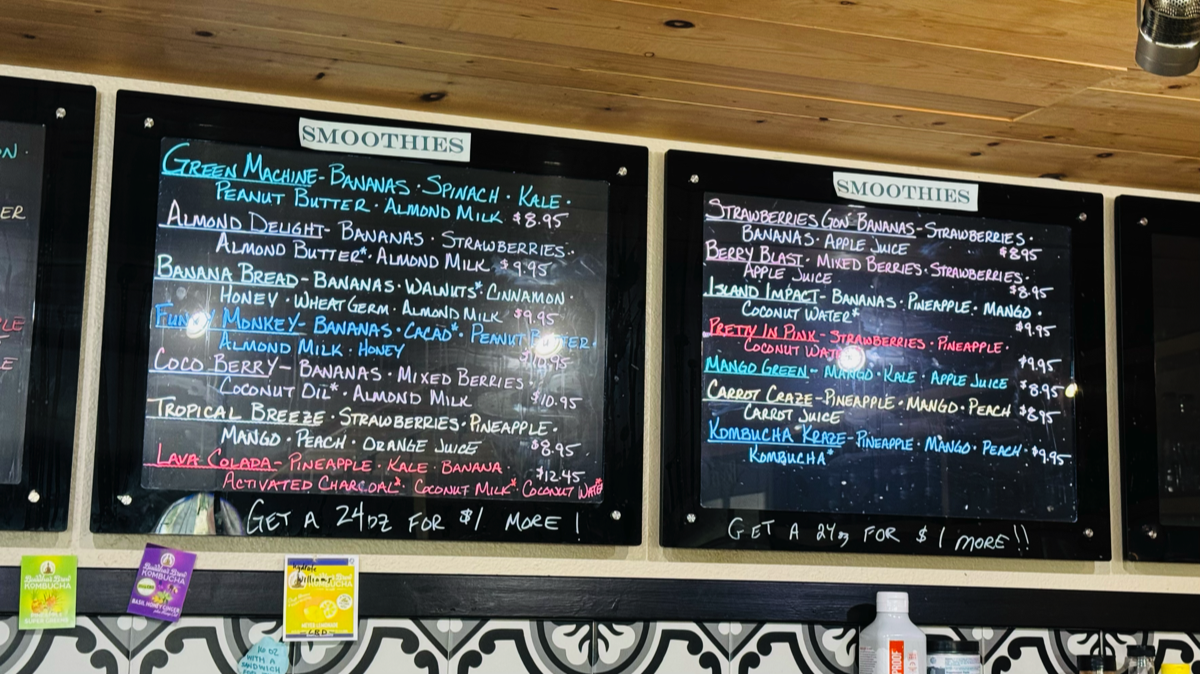 SMOOTHIES
GREEN MACHINE - BANANAS · SPINACH · KALE ·
PEANUT BUTTER · ALMOND MILK $8.95
ALMOND DELIGHT - BANANAS · STRAWBERRIES ·
ALMOND BUTTER* · ALMOND MILK $9.95
BANANA BREAD - BANANAS · WALNUTS* CINNAMON ·
HONEY · WHEAT GERM · ALMOND MILK $9.95
FUNKY MONKEY - BANANAS · CACAO* · PEANUT BUTTER ·
ALMOND MILK · HONEY $10.95
COCO BERRY - BANANAS · MIXED BERRIES ·
COCONUT OIL* · ALMOND MILK $10.95
TROPICAL BREEZE · STRAWBERRIES · PINEAPPLE ·
MANGO · PEACH · ORANGE JUICE $8.95
LAVA COLADA - PINEAPPLE · KALE · BANANA · $12.45
ACTIVATED CHARCOAL* · COCONUT MILK* · COCONUT WATER*
GET A 24oz FOR $1 MORE!
SMOOTHIES
STRAWBERRIES GON' BANANAS - STRAWBERRIES ·
BANANAS · APPLE JUICE $8.95
BERRY BLAST - MIXED BERRIES · STRAWBERRIES ·
APPLE JUICE $8.95
ISLAND IMPACT - BANANAS · PINEAPPLE · MANGO ·
COCONUT WATER* $9.95
PRETTY IN PINK - STRAWBERRIES · PINEAPPLE ·
COCONUT WATER $9.95
MANGO GREEN - MANGO · KALE · APPLE JUICE $8.95
CARROT CRAZE - PINEAPPLE · MANGO · PEACH $8.95
CARROT JUICE
KOMBUCHA KRAZE - PINEAPPLE · MANGO · PEACH · $9.95
KOMBUCHA*
GET A 24oz FOR $1 MORE!!
KOMBUCHA
KOMBUCHA
BASIL HONEY GINGER
KOMBUCHA
CBD
16 OZ
WITH A
SANDWICH
PROOF